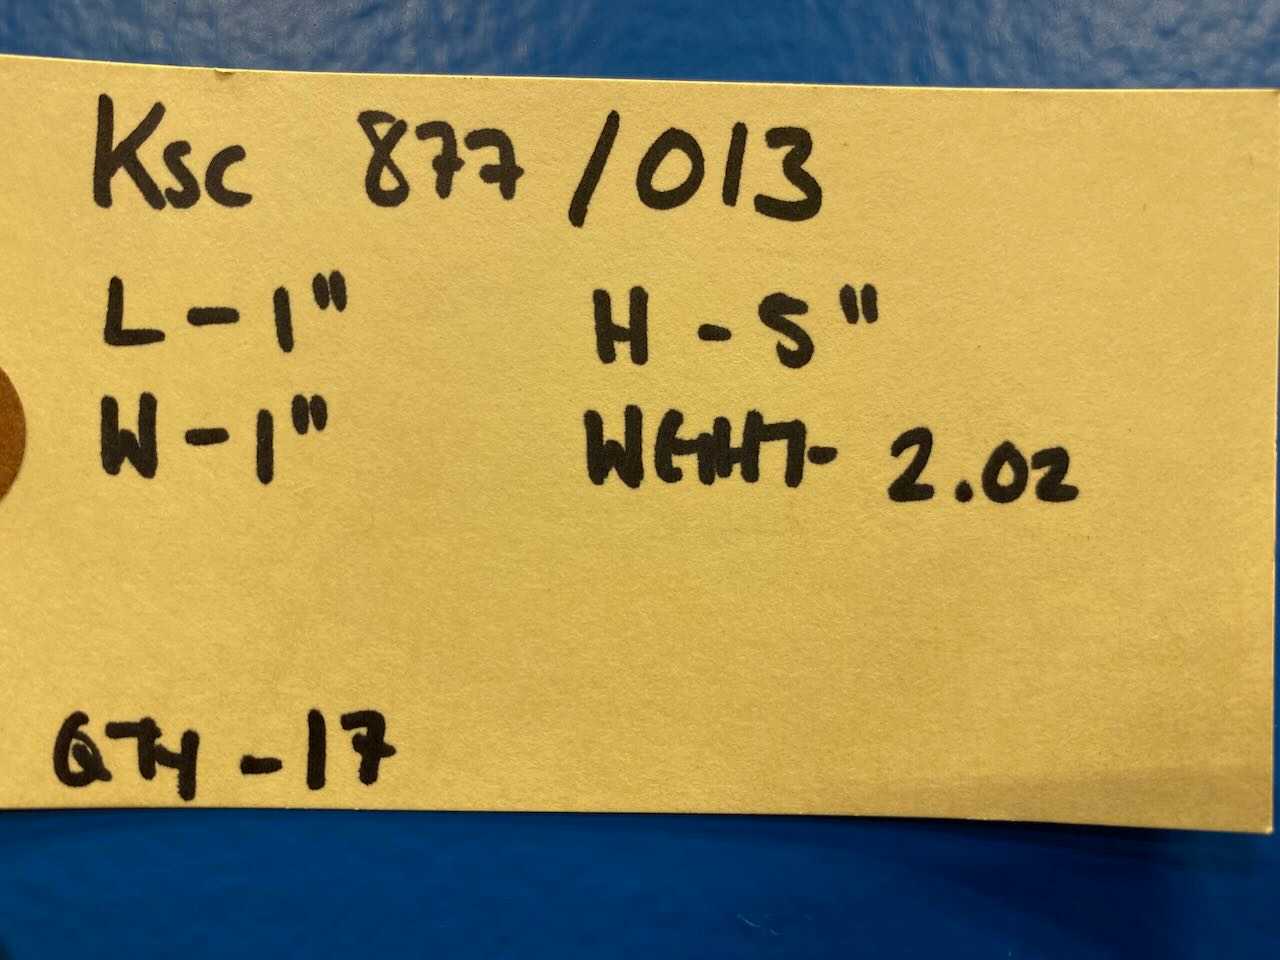 Ksc 877/013
L-1" H-5"
W-1" WEIGHT- 2.02
QTY-17